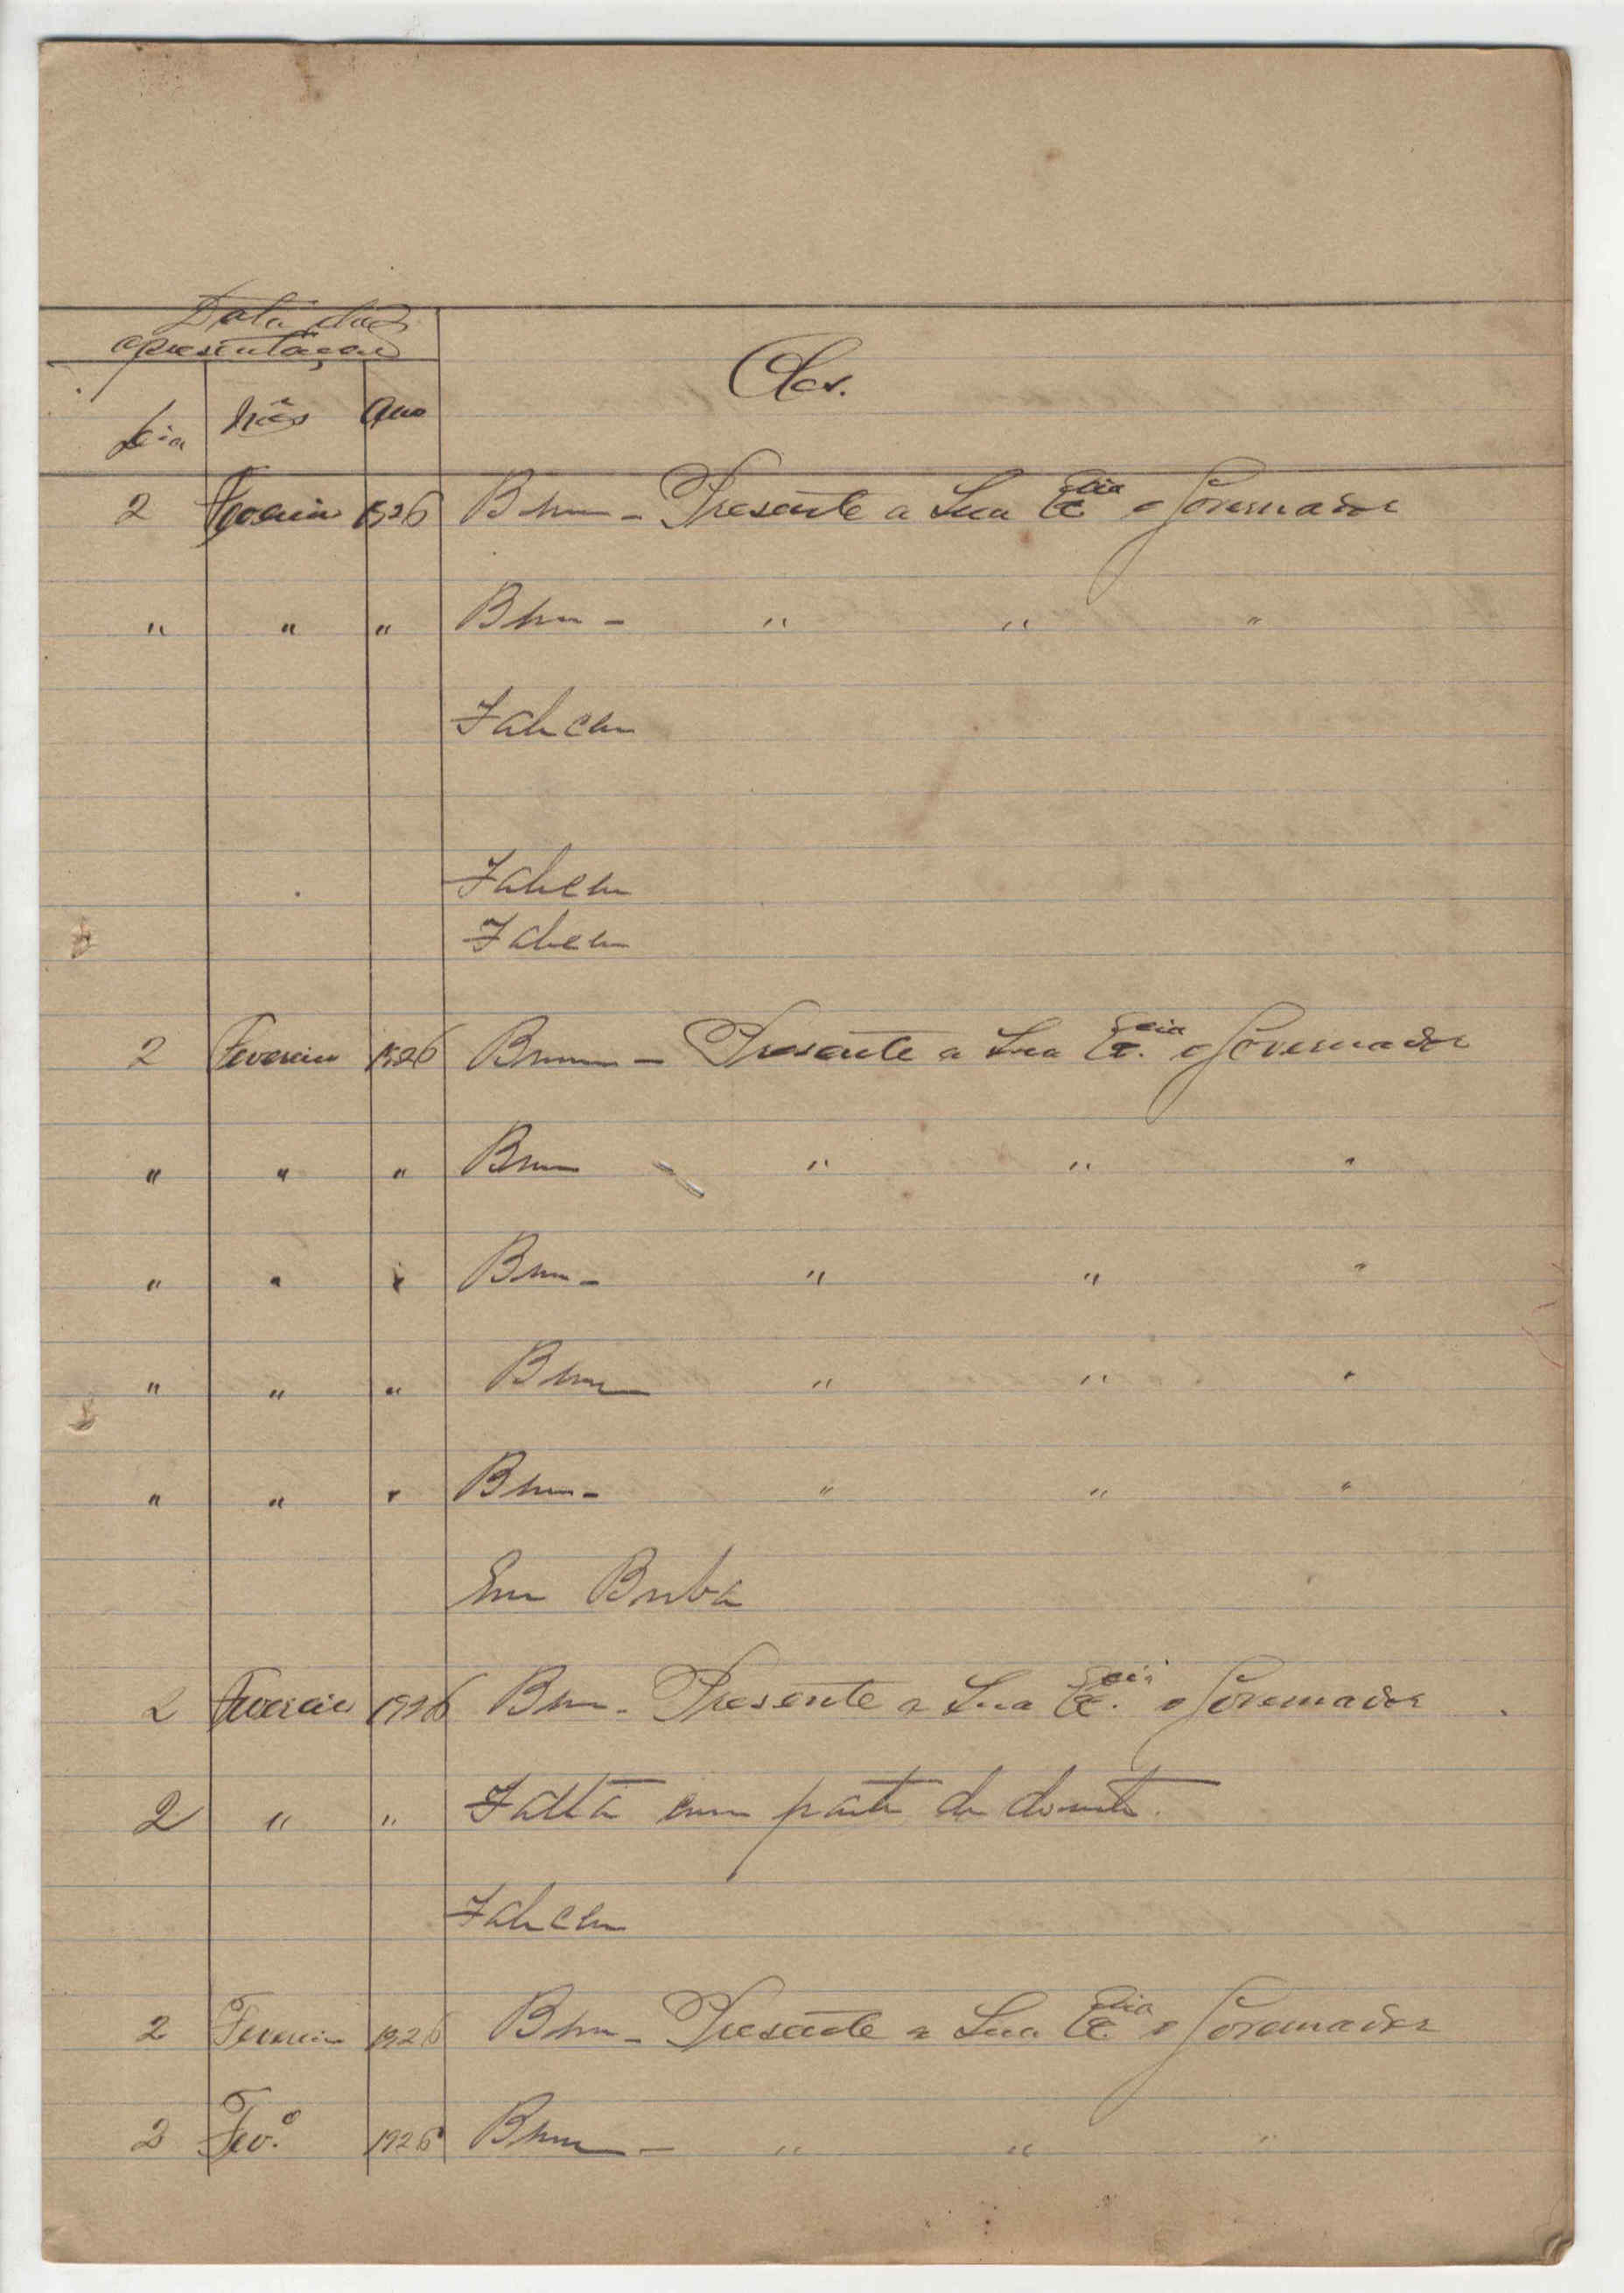 Data das
apresentações
Obs.
Dia Mês Ano
2 Fevereiro 1926 Bom - Presente a Sua Ex.cia o Governador
" " " Bom - " " "
Faleceu
Faleceu
Faleceu
2 Fevereiro 1926 Bom - Presente a Sua Ex.cia o Governador
" " " Bom " " "
" " " Bom - " " "
" " " Bom " " "
" " " Bom - " " "
Em Buba
2 Fevereiro 1926 Bom - Presente a Sua Ex.cia o Governador
2 " " Falta com parte de doente.
Faleceu
2 Fevereiro 1926 Bom - Presente a Sua Ex.cia o Governador
2 Fev.o 1926 Bom - " " "